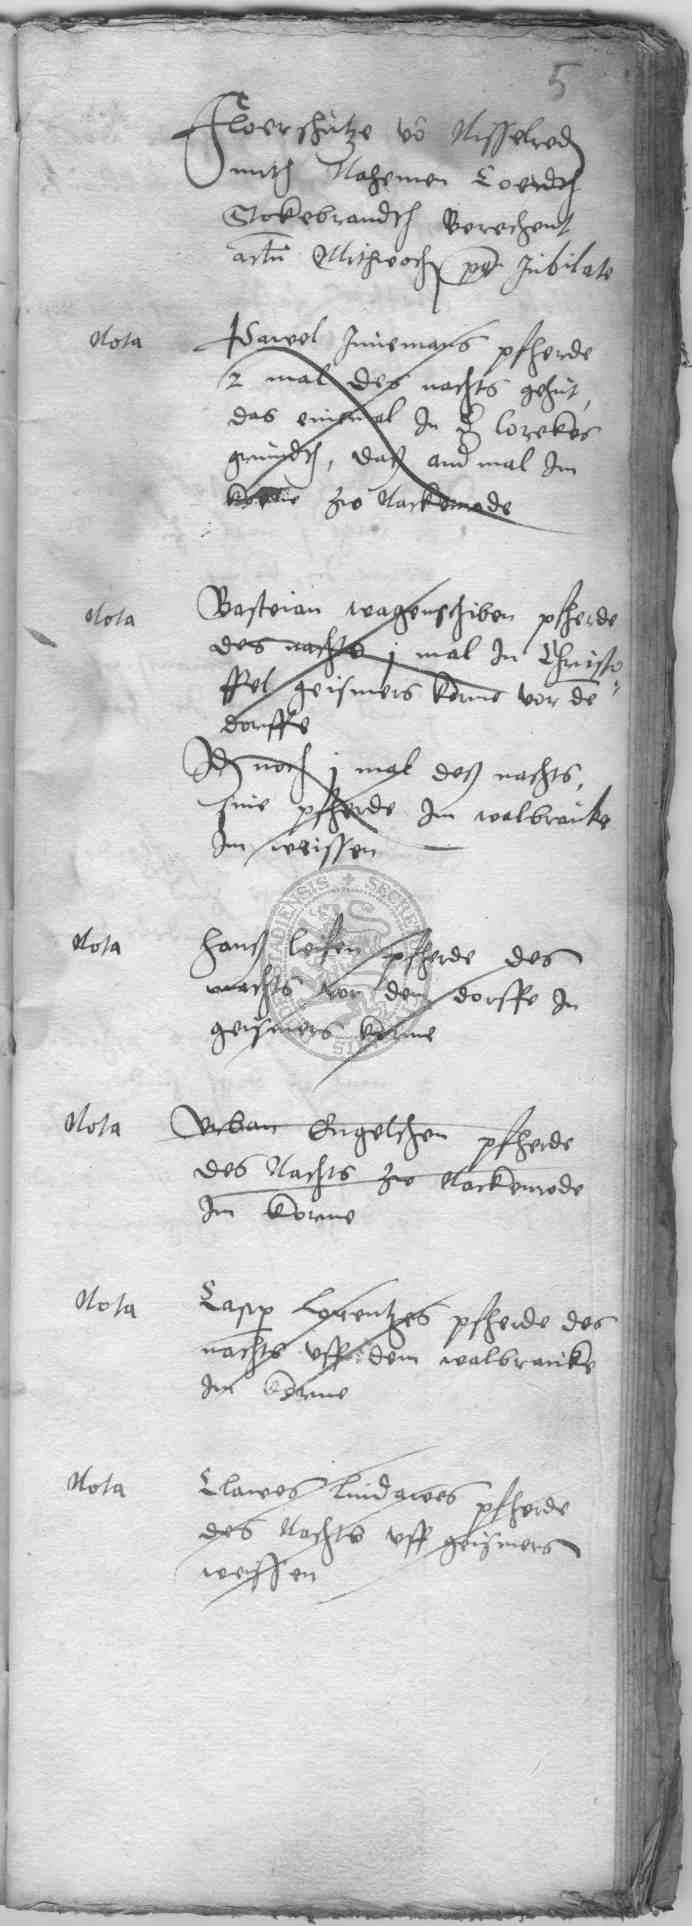 5
Floerschutze vo Nisselred
mith Nahemen Coerdt
Stokebrandth Berechent
actu Mithwoch pt Jubilate
Nota Pawel Junemans pfherde
2 mal des nachts gehut,
das eine mal In lorekes
grundth, daß and mal Im
korne zw Nackenrode
Nota Basteian wagenschiben pfherde
des nachts j mal In Christo
ffel geismers korne vor de
dorffe
Id noch j mal deß nachts,
sine pfherde Im walbrauke
Im weissen
Nota Hanß leken pfherde des
nachts vor dem dorffe In
geismers korne
Nota Urban Engelchen pfherde
des Nachts zw Nackenrode
Im korne
Nota Casp Lorentzes pfherde des
nachts uff dem walbrauke
Im korne
Nota Clawes lindawes pfherde
des Nachts uff geismers
weissen